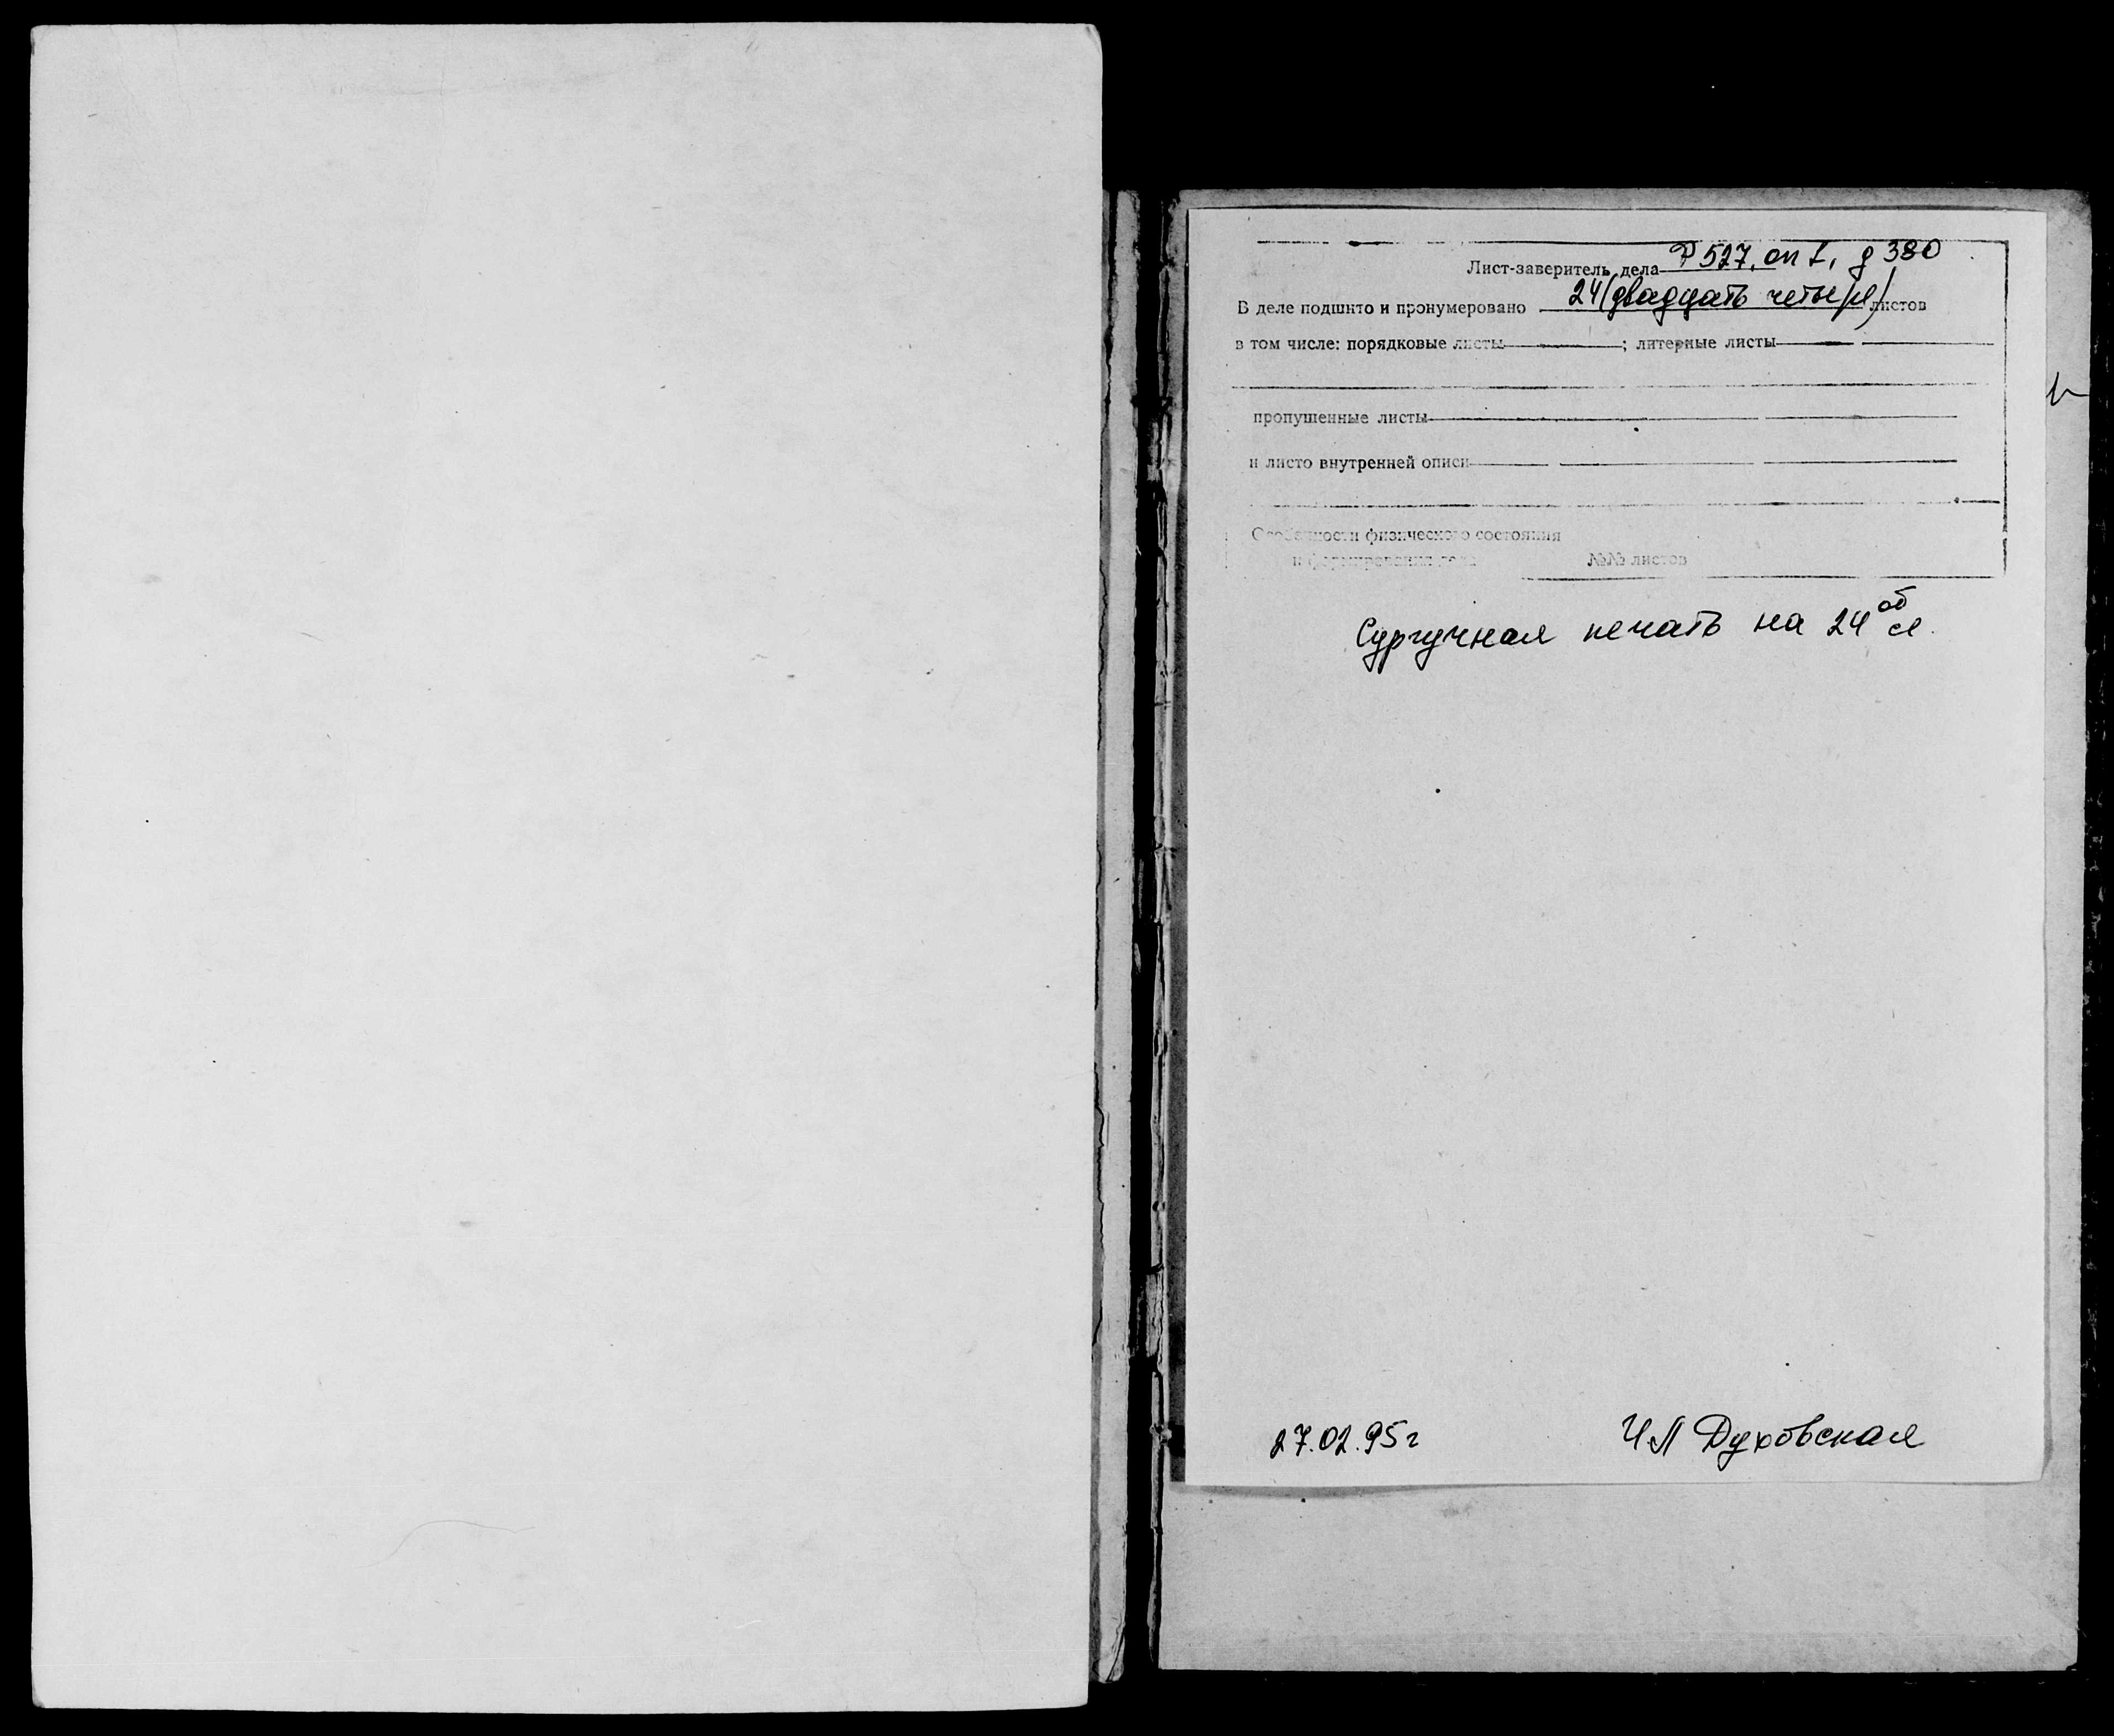 Лист-заверитель дела Р 527, оп 1, д 380
В деле подшито и пронумеровано 24 (двадцать четыре) листов
в том числе: порядковые листы ; литерные листы
пропущенные листы
и листо внутренней описи
Особенности физического состояния
и формирования дела №№ листов
Сургучная печать на 24 об л.
27.02.95 г Духовская